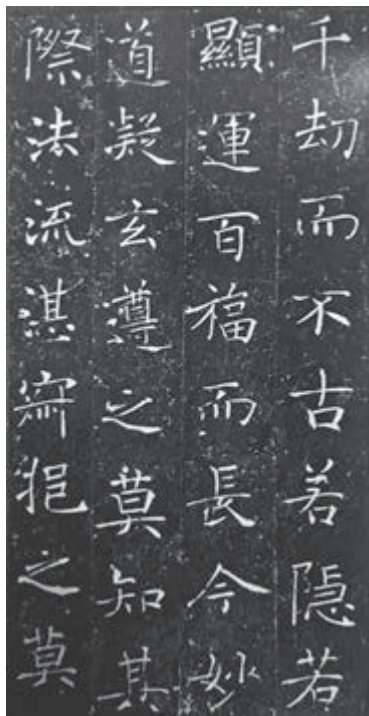 千劫而不古若隐若
顯運百福而長今妙
道凝玄遵之莫知其
際法流湛寂挹之莫